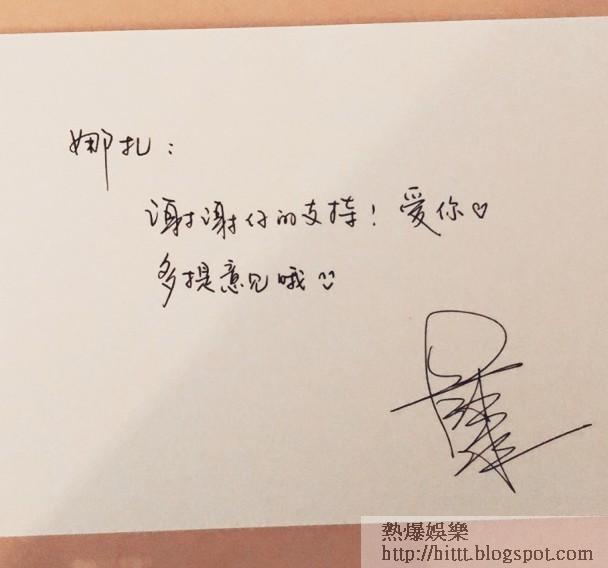 娜扎：
谢谢你的支持！爱你♡
多提意见哦
熱爆娛樂
http://hittt.blogspot.com